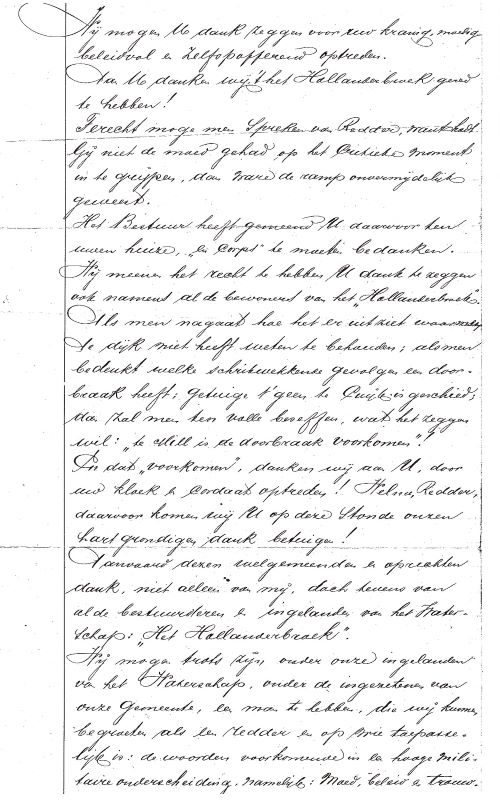 Wij mogen U dank zeggen voor uw kranig, moedig
beleidvol en zelfopofferend optreden.
Aan U danken wij 't het Hollanderbroek gered
te hebben!
Terecht moge men spreken van Redder, want hadt
Gij niet de moed gehad op het Critieke moment
in te grijpen, dan ware de ramp onvermijdelijk
geweest.
Het Bestuur heeft gemeend U daarvoor ten
uwen huize, "en Corps" te moeten bedanken.
Wij meenen het recht te hebben U dank te zeggen
ook namens al de bewoners van het "Hollanderbroek".
Als men nagaat hoe het er uitziet waar men
de dijk niet heeft weten te behouden; als men
bedenkt welke schrikwekkende gevolgen een door-
braak heeft; getuige 't geen te Cuijk is geschied;
dan zal men ten volle beseffen, wat het zeggen
wil: "te Mill is de doorbraak voorkomen"!
En dat "voorkomen", danken wij aan U, door
uw kloek en cordaat optreden! Welnu, Redder,
daarvoor komen wij U op deze stonde onzen
hartgrondigen dank betuigen!
Aanvaard dezen welgemeenden en oprechten
dank, niet alleen van mij, doch tevens van
al de bestuursleden en ingelanden van het Water-
schap: "Het Hollanderbroek".
Wij mogen trots zijn onder onze ingelanden
van het Waterschap, onder de ingezetenen van
onze Gemeente, een man te hebben, die wij kunnen
begroeten als een redder en op wie toepasse-
lijk is: de woorden voorkomende in een hooge mili-
taire onderscheiding, namelijk: Moed, beleid en trouw.